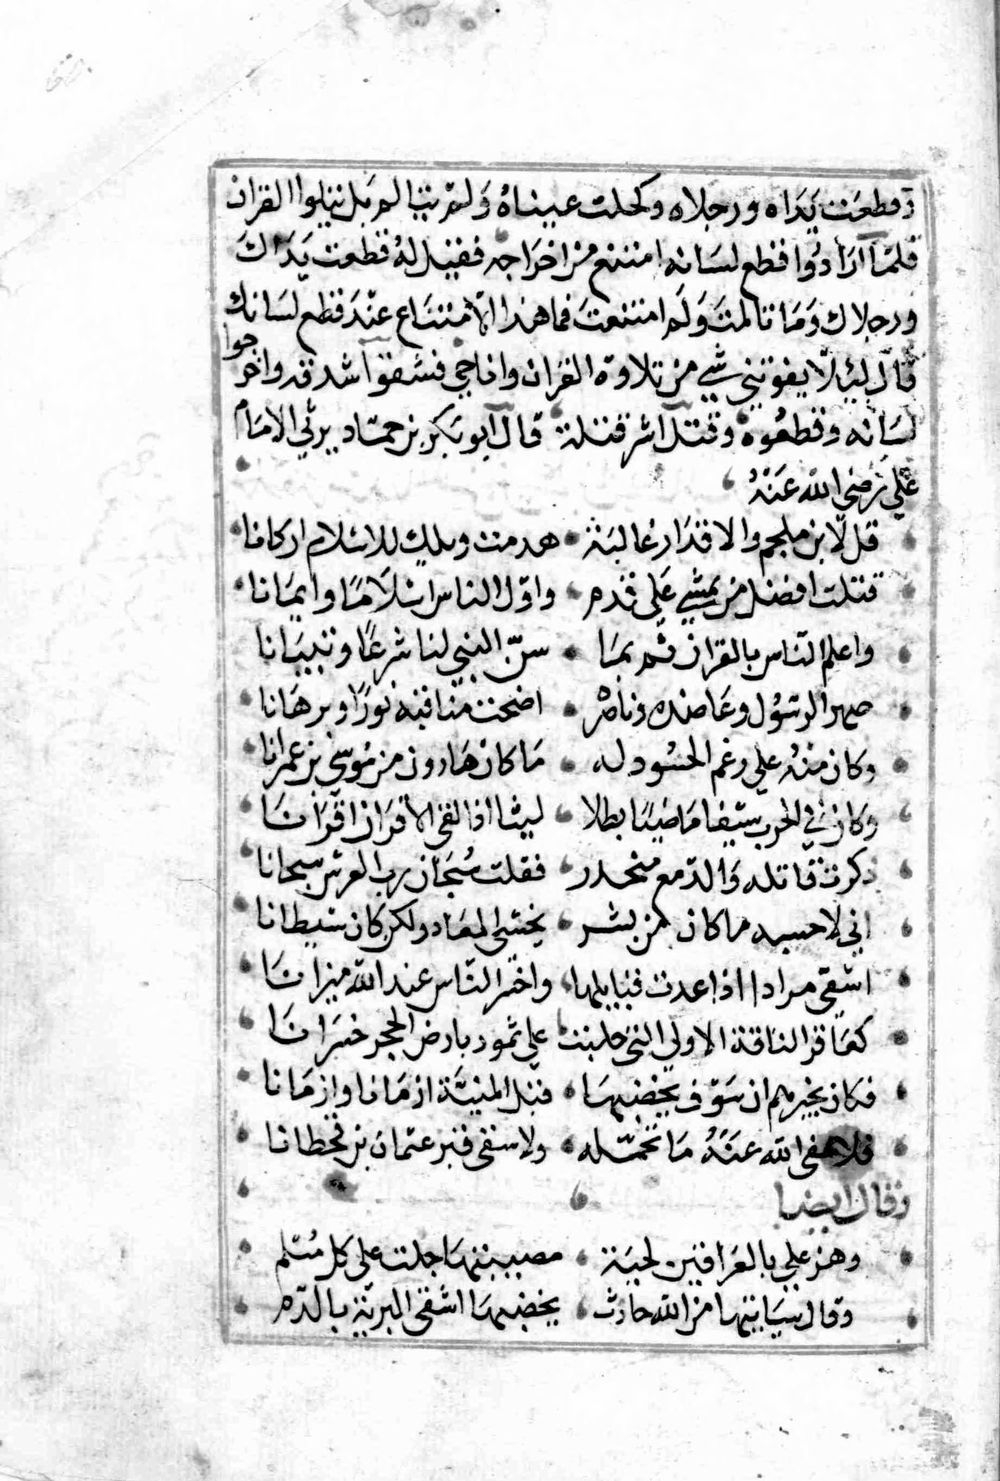 فقطعت يداه ورجلاه وكحلت عيناه ولم يتالم بل يتلوا القران
فلما ارادوا قطع لسانه امتنع من اخراجه فقيل له قطعت يداك
ورجلاك وما تالمت ولم امتنعت فما هذا الامتناع عند قطع لسانك
قال ليلا يفوتني شي من تلاوة القران وانا حي فشقوا شدقه واخرجوا
لسانه وقطعوه وقتل اشر قتلة قال ابو بكر بن حماد يرثي الامام
علي رضى الله عنه
قل لابن ملجم والاقدار غالبة هدمت ويلك للاسلام اركانا
قتلت افضل من يمشي على قدم واول الناس اسلاما وايمانا
واعلم الناس بالقران ثم بما سن النبي لنا شرعا وتبيانا
صهر الرسول وعاضده وناصر اضحت مناقبه نورا وبرهانا
وكان منه على رغم الحسود له ما كان هارون من موسى بن عمرانا
وكان في الحرب سيفا ماضيا بطلا ليثا اذا لقى الاقران اقرانا
ذكرت قاتله والدمع منحدر فقلت سبحان رب العرش سبحانا
اني لاحسبه ما كان من بشر يخشى المعاد ولكن كان شيطانا
اشقى مرادا اذا عدت قبايلها واخسر الناس عند الله ميزانا
كعاقر الناقة الاولى التي جلبت على ثمود بارض الحجر خسرانا
فكان يخبرهم ان سوف يخضبها قبل المنية ازمانا وازمانا
فلا عفى الله عنه ما تحمله ولا سقى قبر عثمان بن قحطانا
وقال ايضا
وهز علي بالعراقين لحية مصيبتها جلت على كل مسلم
وقال سياتيها من الله حادث يخضبها اشقى البرية بالدم